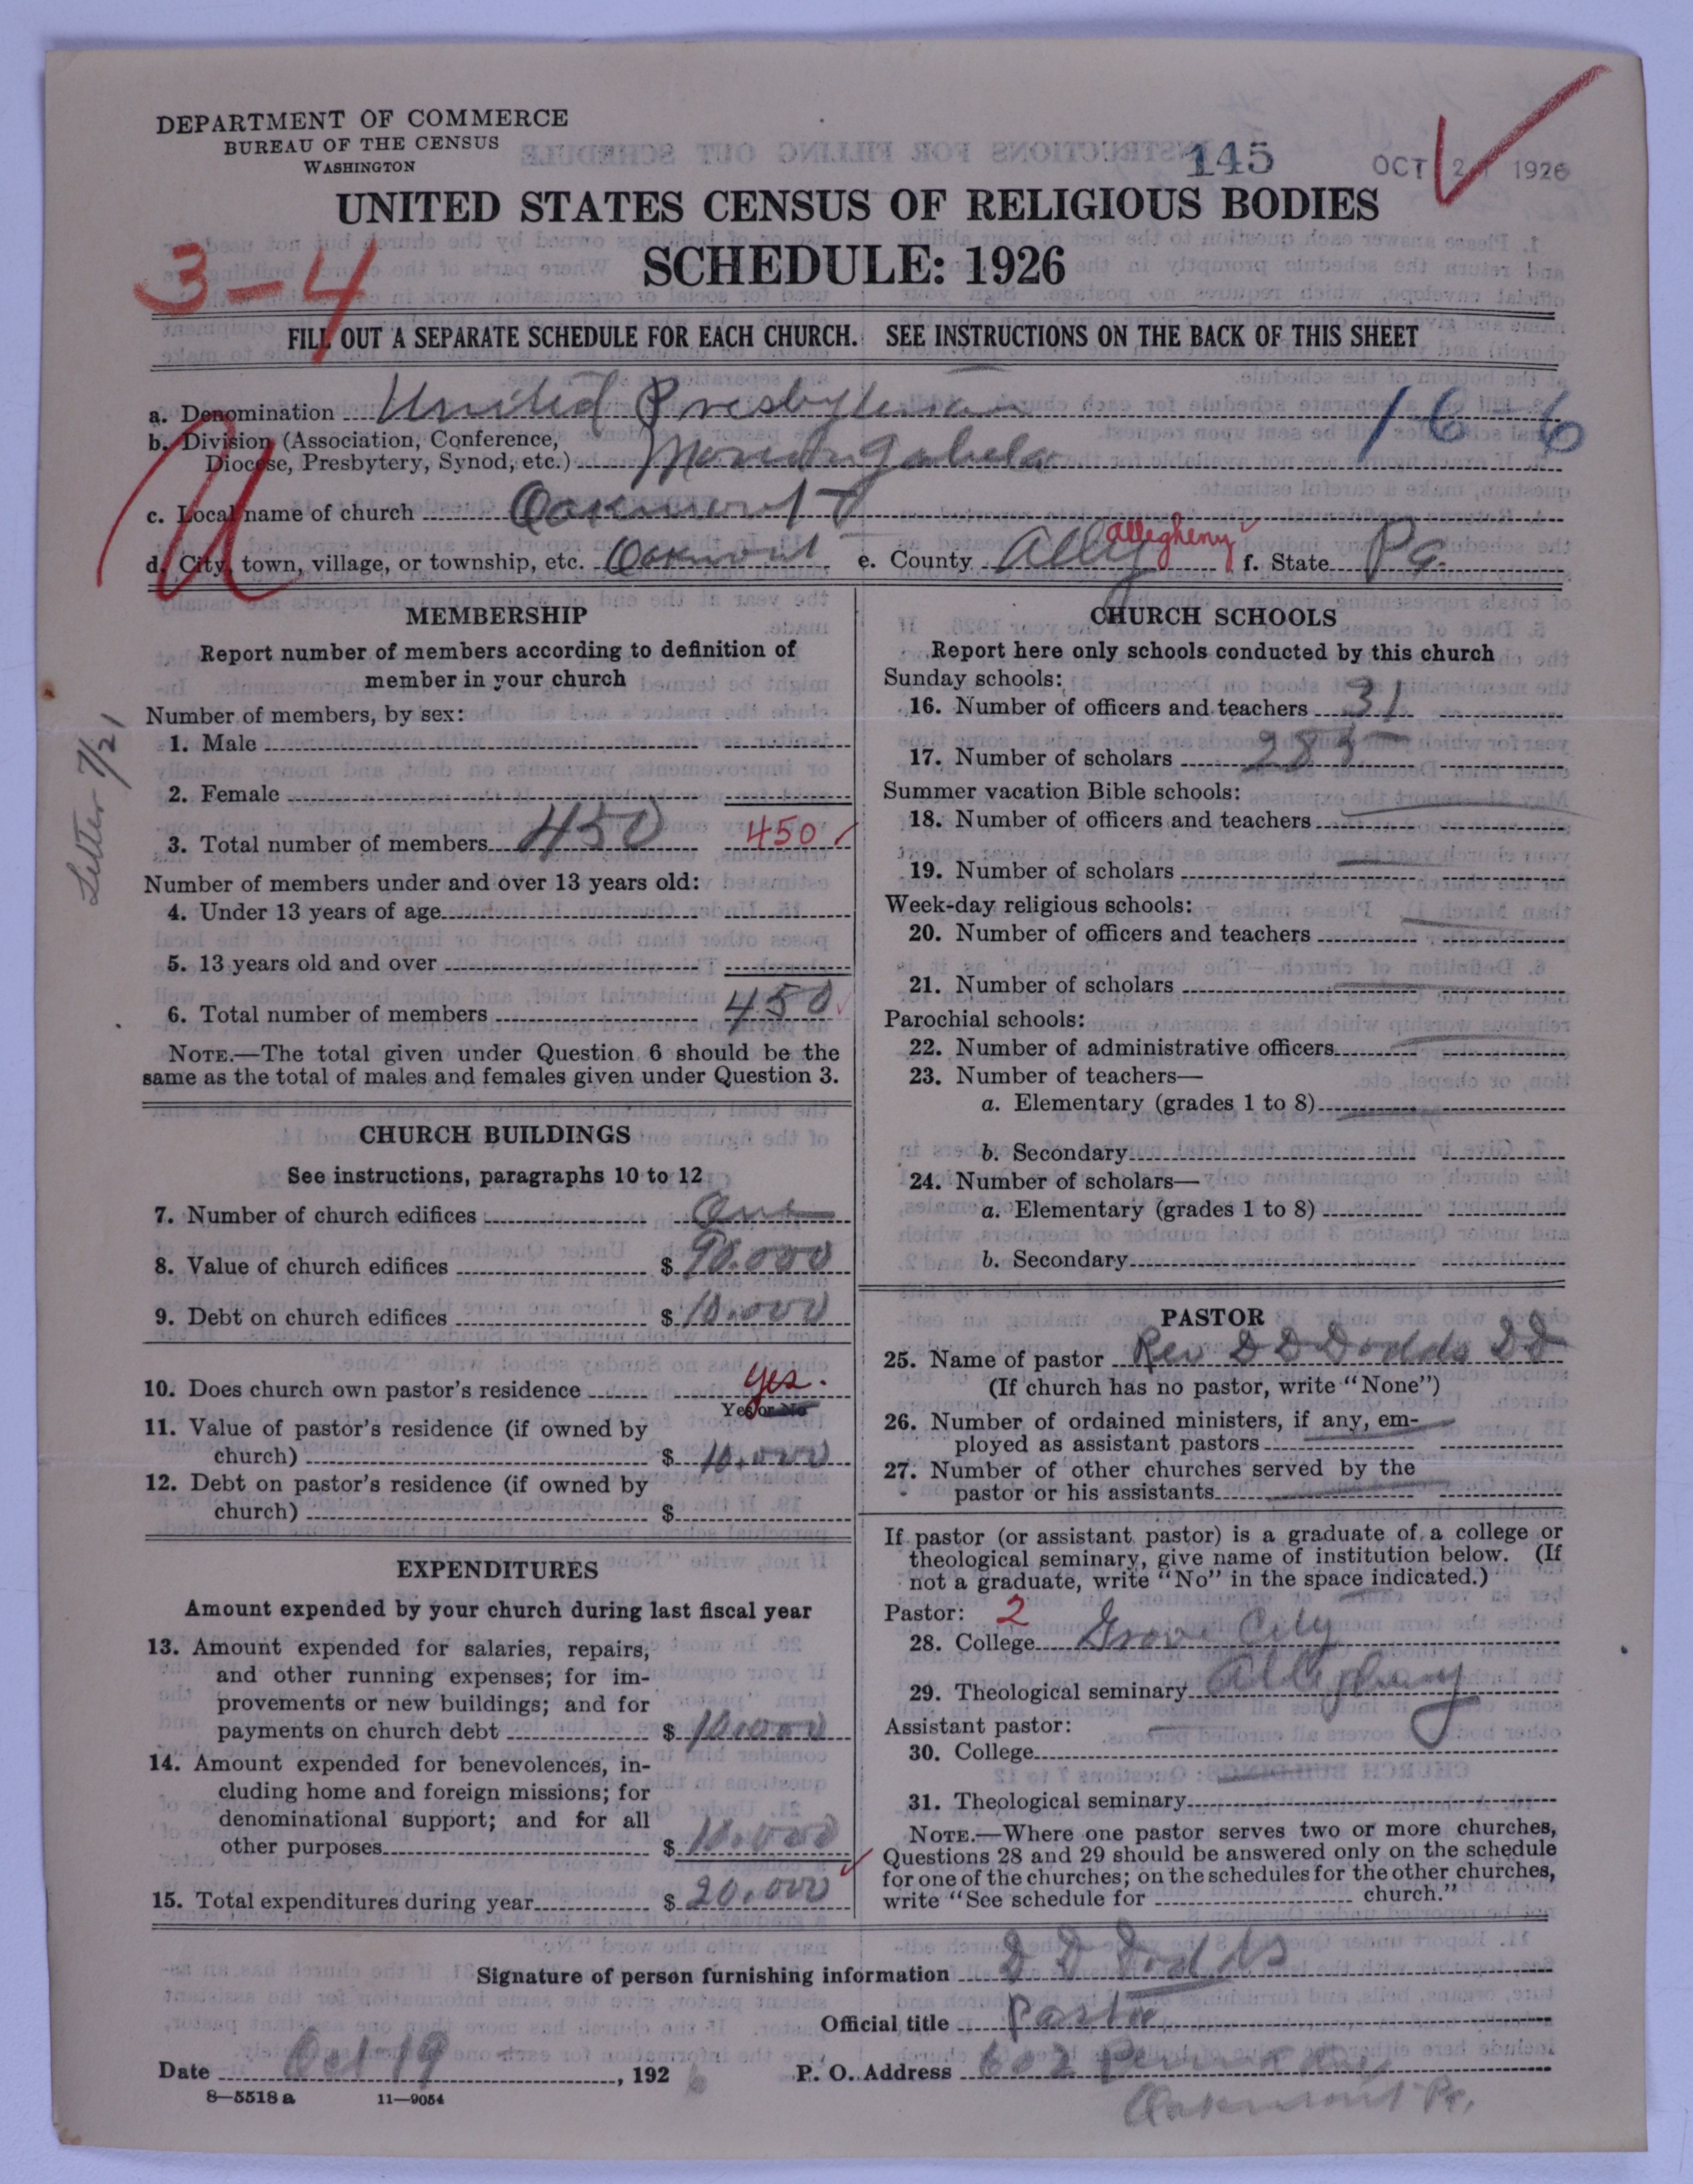 DEPARTMENT OF COMMERCE
BUREAU OF THE CENSUS
WASHINGTON
145
OCT 2 1926
UNITED STATES CENSUS OF RELIGIOUS BODIES
3-4
SCHEDULE: 1926
FILL OUT A SEPARATE SCHEDULE FOR EACH CHURCH. SEE INSTRUCTIONS ON THE BACK OF THIS SHEET
a. Denomination United Presbyterian 16-6
b. Division (Association, Conference,
Diocese, Presbytery, Synod, etc.) Monongahela
c. Local name of church Oakmont
d. City, town, village, or township, etc. Oakmont e. County Alleg Allegheny f. State Pa.
U
MEMBERSHIP
Report number of members according to definition of
member in your church
Number of members, by sex:
1. Male
2. Female
3. Total number of members 450 450
Number of members under and over 13 years old:
4. Under 13 years of age
5. 13 years old and over
6. Total number of members 450
NOTE.—The total given under Question 6 should be the
same as the total of males and females given under Question 3.
Letter 7/21
CHURCH BUILDINGS
See instructions, paragraphs 10 to 12
7. Number of church edifices One
8. Value of church edifices $ 90.000
9. Debt on church edifices $ 10.000
10. Does church own pastor's residence Yes.
Yes or No
11. Value of pastor's residence (if owned by
church) $ 10.000
12. Debt on pastor's residence (if owned by
church) $
EXPENDITURES
Amount expended by your church during last fiscal year
13. Amount expended for salaries, repairs,
and other running expenses; for im-
provements or new buildings; and for
payments on church debt $ 10.000
14. Amount expended for benevolences, in-
cluding home and foreign missions; for
denominational support; and for all
other purposes $ 10.000
15. Total expenditures during year $ 20.000
CHURCH SCHOOLS
Report here only schools conducted by this church
Sunday schools:
16. Number of officers and teachers 31
17. Number of scholars 285
Summer vacation Bible schools:
18. Number of officers and teachers
19. Number of scholars
Week-day religious schools:
20. Number of officers and teachers
21. Number of scholars
Parochial schools:
22. Number of administrative officers
23. Number of teachers—
a. Elementary (grades 1 to 8)
b. Secondary
24. Number of scholars—
a. Elementary (grades 1 to 8)
b. Secondary
PASTOR
25. Name of pastor Rev D D Dodds DD
(If church has no pastor, write "None")
26. Number of ordained ministers, if any, em-
ployed as assistant pastors
27. Number of other churches served by the
pastor or his assistants
If pastor (or assistant pastor) is a graduate of a college or
theological seminary, give name of institution below. (If
not a graduate, write "No" in the space indicated.)
Pastor: 2
28. College Grove City
29. Theological seminary Allegheny
Assistant pastor:
30. College
31. Theological seminary
NOTE.—Where one pastor serves two or more churches,
Questions 28 and 29 should be answered only on the schedule
for one of the churches; on the schedules for the other churches,
write "See schedule for church."
Signature of person furnishing information D D Dodds
Official title Pastor
Date Oct 19, 1926 P. O. Address 602
Oakmont Pa.
8—5518 a 11—9054